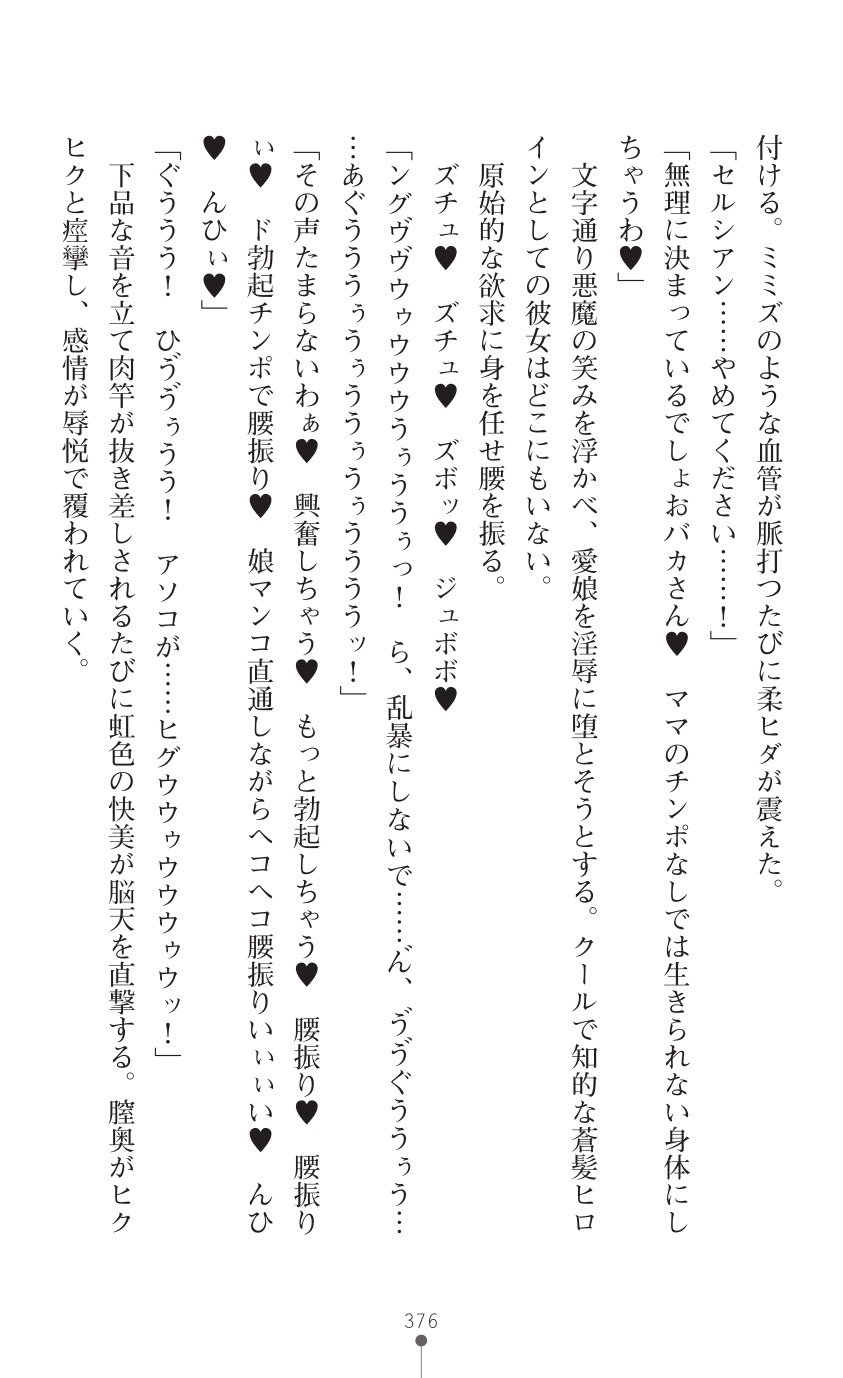 付ける。ミミズのような血管が脈打つたびに柔ヒダが震えた。
「セルシアン……やめてください……！」
「無理に決まっているでしょおバカさん♥　ママのチンポなしでは生きられない身体にし
ちゃうわ♥」
　文字通り悪魔の笑みを浮かべ、愛娘を淫辱に堕とそうとする。クールで知的な蒼髪ヒロ
インとしての彼女はどこにもいない。
　原始的な欲求に身を任せ腰を振る。
　ズチュ♥　ズチュ♥　ズボッ♥　ジュボボ♥
「ングヴヴウゥウウウうぅううぅっ！　ら、乱暴にしないで……ん゛、ゔゔぐううぅう…
…あぐうううぅうぅううぅうぅううううッ！」
「その声たまらないわぁ♥　興奮しちゃう♥　もっと勃起しちゃう♥　腰振り♥　腰振り
ぃ♥　ド勃起チンポで腰振り♥　娘マンコ直通しながらヘコヘコ腰振りいぃぃい♥　んひ
♥　んひぃ♥」
「ぐううう！　ひゔゔぅうう！　アソコが……ヒグウウゥウウウゥウッ！」
　下品な音を立て肉竿が抜き差しされるたびに虹色の快美が脳天を直撃する。膣奥がヒク
ヒクと痙攣し、感情が辱悦で覆われていく。
376